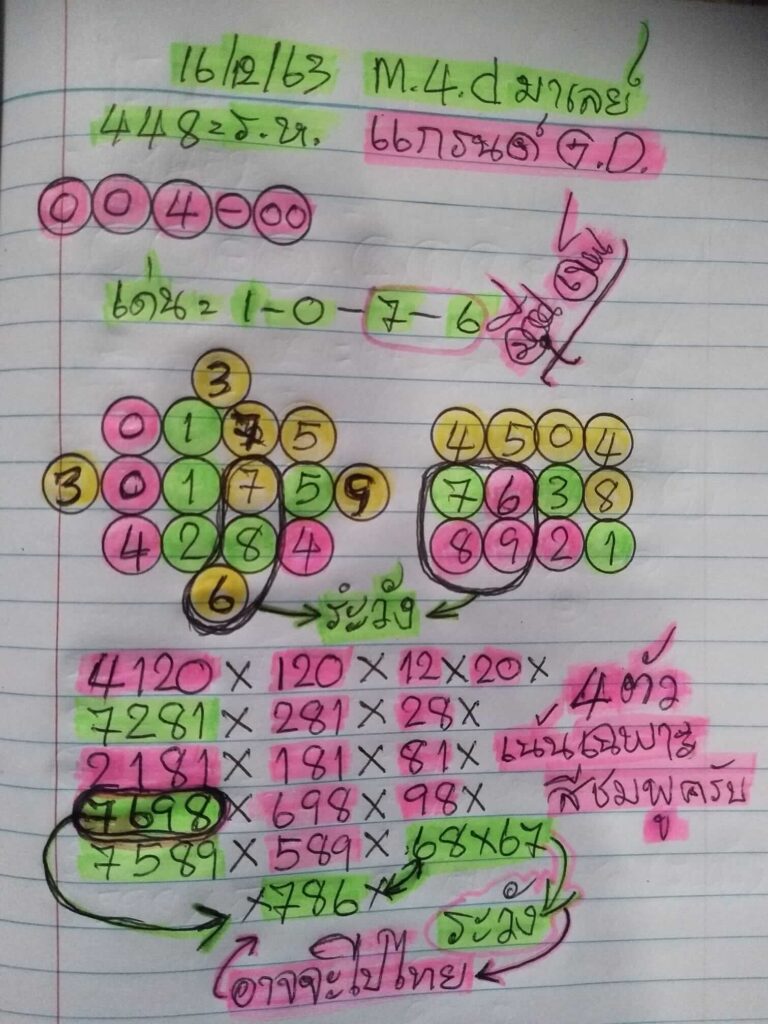 16/12/63 M.4.d มาเลย์
448=ร.ห. แกรนด์ G.D.
0 0 4 - 00
เด่น = 1-0-7-6
3
0 1 7 5
3 0 1 7 5 9
4 2 8 4
6
4 5 0 4
7 6 3 8
8 9 2 1
ระวัง
4120 x 120 x 12 x 20 x
7281 x 281 x 28 x
2181 x 181 x 81 x
7698 x 698 x 98 x
7589 x 589 x 68x67
x 786 x
4 ตัว
เน้นเฉพาะ
สีชมพูครับ
ระวัง
อาจจะไปไทย